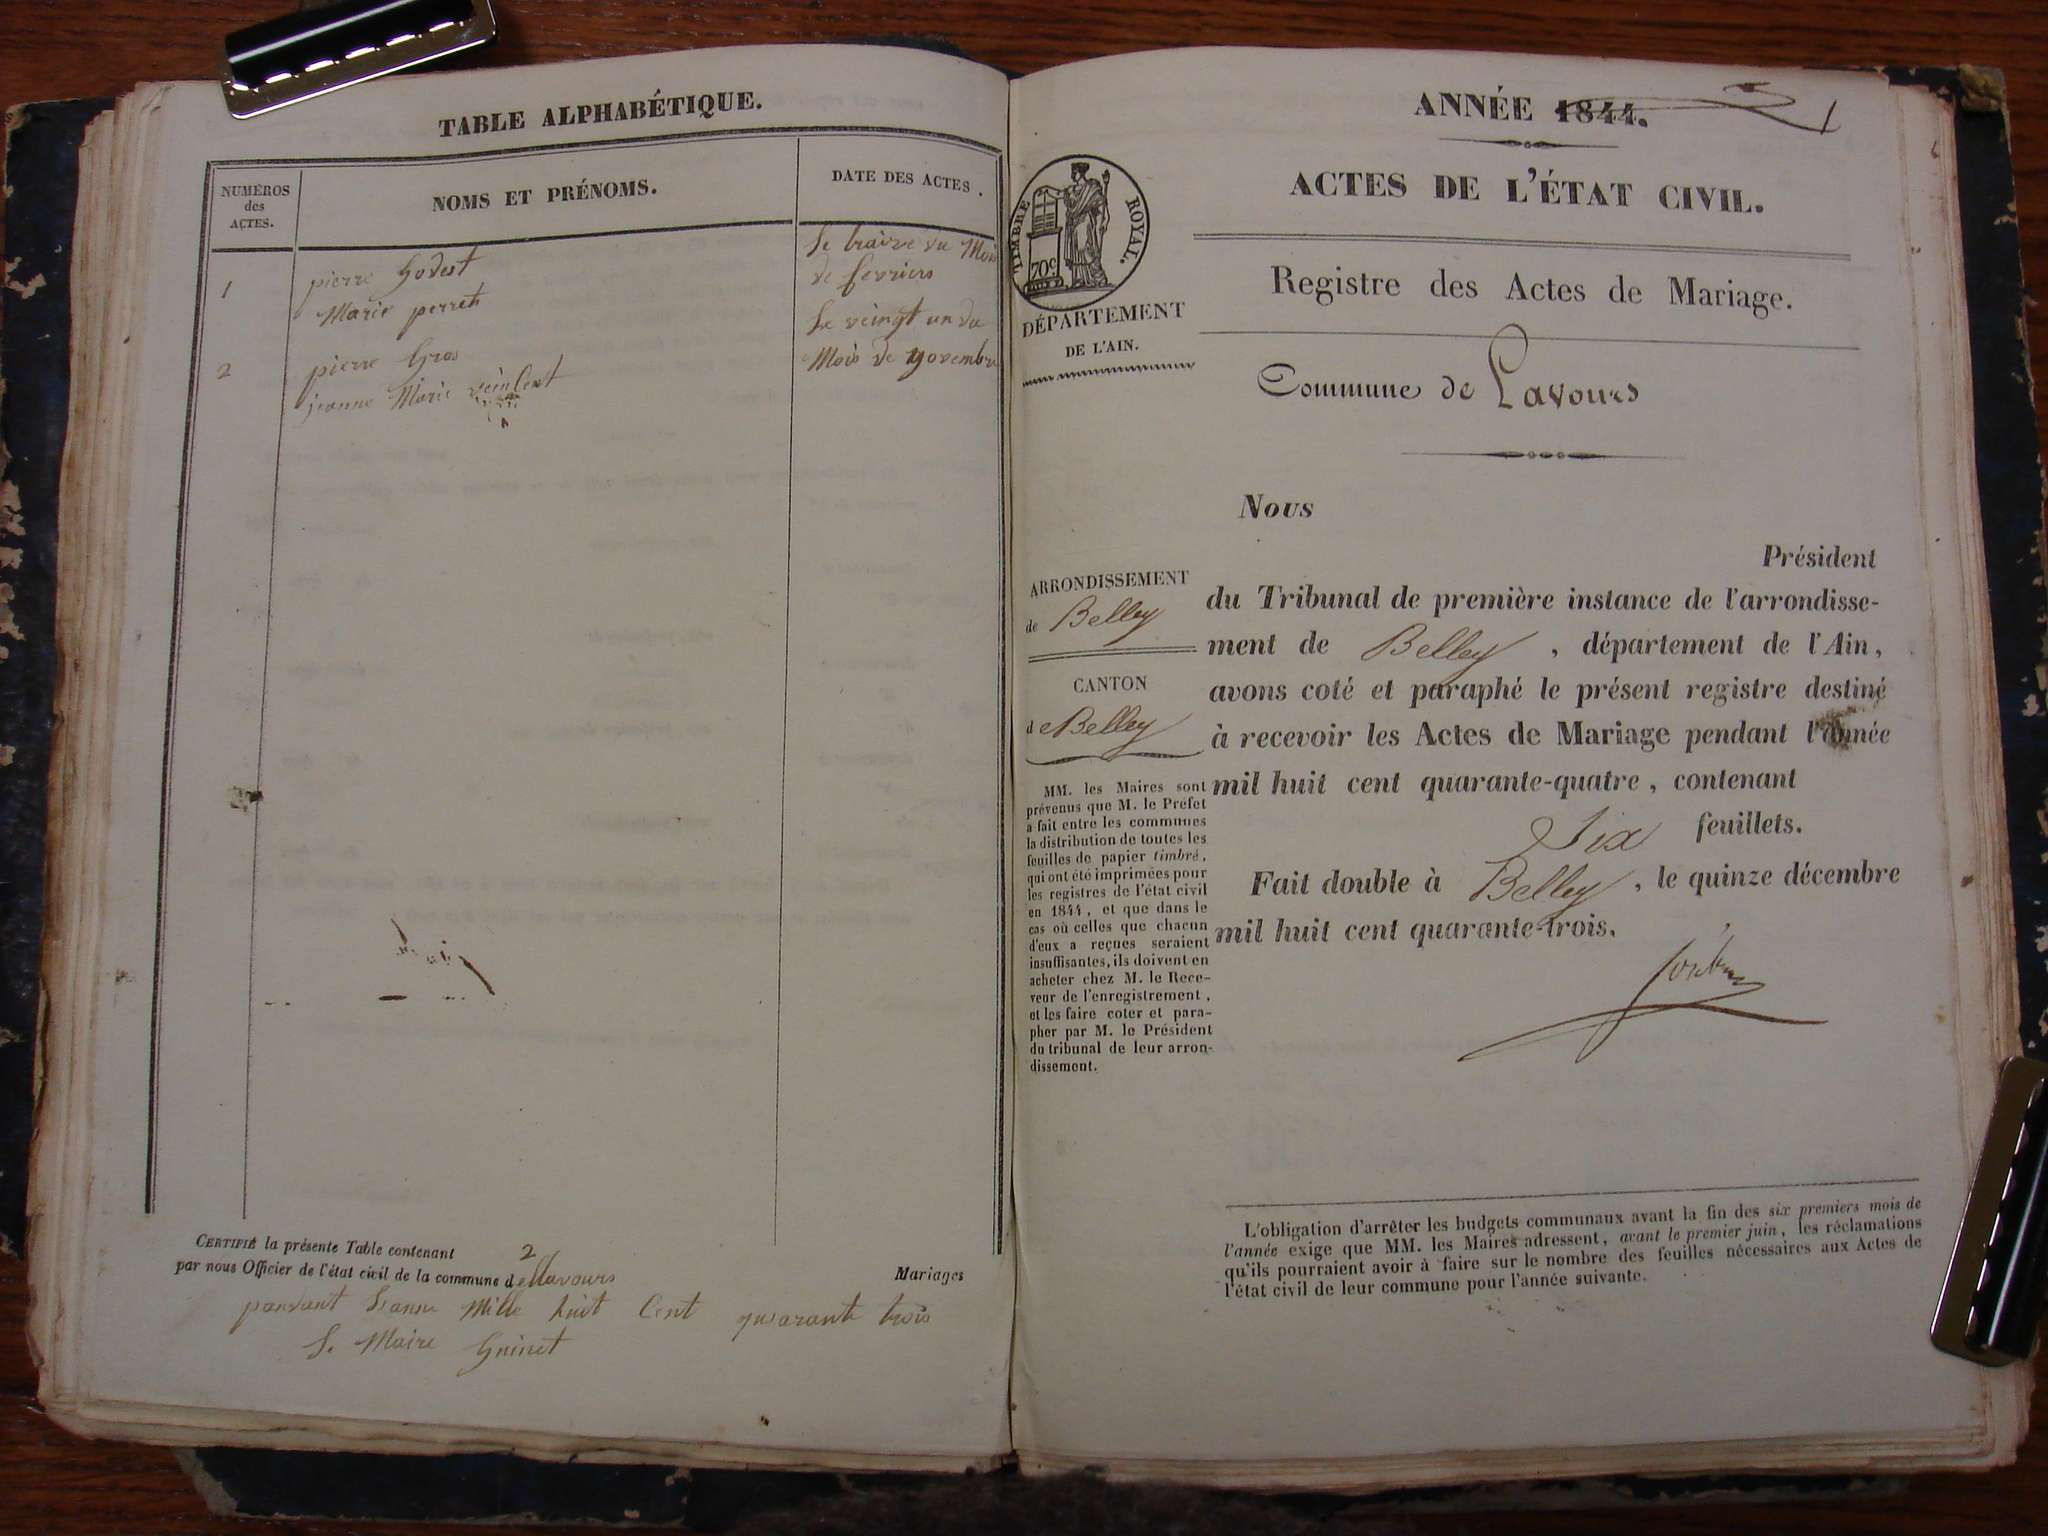 TABLE ALPHABÉTIQUE.
NUMÉROS
des
ACTES.
NOMS ET PRÉNOMS.
DATE DES ACTES.
1
pierre Godest
Marie perret
le traize du Mois
de fevriers
2
pierre Gros
jeanne Marie veincent
Le veingt un du
Mois de novembre
CERTIFIÉ la présente Table contenant 2 Mariages
par nous Officier de l'état civil de la commune de Lavours
pandant Lanne Mille huit Cent quarante trois
L. Maire Guinet
ANNÉE 1844.
1
ACTES DE L'ÉTAT CIVIL.
TIMBRE ROYAL.
70c
DÉPARTEMENT
DE L'AIN.
Registre des Actes de Mariage.
Commune de Lavours
ARRONDISSEMENT
de Belley
CANTON
de Belley
MM. les Maires sont
prévenus que M. le Préfet
a fait entre les communes
la distribution de toutes les
feuilles de papier timbré,
qui ont été imprimées pour
les registres de l'état civil
en 1844, et que dans le
cas où celles que chacun
d'eux a reçues seraient
insuffisantes, ils doivent en
acheter chez M. le Rece-
veur de l'enregistrement,
et les faire coter et para-
pher par M. le Président
du tribunal de leur arron-
dissement.
Nous
Président
du Tribunal de première instance de l'arrondisse-
ment de Belley, département de l'Ain,
avons coté et paraphé le présent registre destiné
à recevoir les Actes de Mariage pendant l'année
mil huit cent quarante-quatre, contenant
Six feuillets.
Fait double à Belley, le quinze décembre
mil huit cent quarante-trois.
L'obligation d'arrêter les budgets communaux avant la fin des six premiers mois de
l'année exige que MM. les Maires adressent, avant le premier juin, les réclamations
qu'ils pourraient avoir à faire sur le nombre des feuilles nécessaires aux Actes de
l'état civil de leur commune pour l'année suivante.